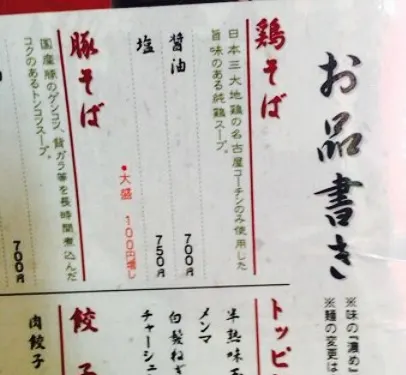 お品書き
※味の『濃め』
※麺の変更は
鶏そば
日本三大地鶏の名古屋コーチンのみ使用した
旨味のある純鶏スープ。
醤油 700円
塩 750円
●大盛 100円増し
豚そば
国産豚のゲンコツ、背ガラ等を長時間煮込んだ
コクのあるトンコツスープ。
700円
トッピ
半熟味玉
メンマ
白髪ねぎ
チャーシュ
餃子
肉餃子